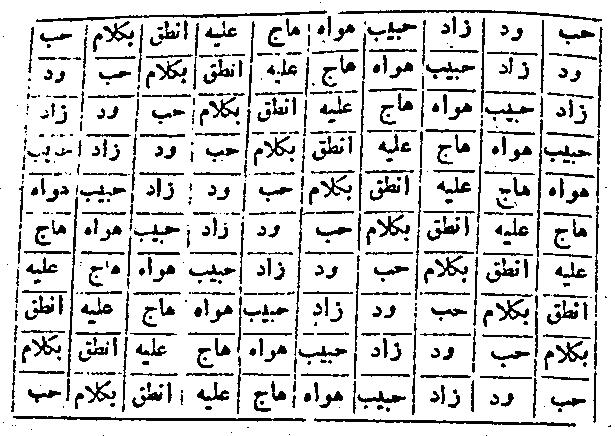 حب ود زاد حبيب هواه هاج عليه انطق بكلام حب
ود زاد حبيب هواه هاج عليه انطق بكلام حب ود
زاد حبيب هواه هاج عليه انطق بكلام حب ود زاد
حبيب هواه هاج عليه انطق بكلام حب ود زاد حبيب
هواه هاج عليه انطق بكلام حب ود زاد حبيب هواه
هاج عليه انطق بكلام حب ود زاد حبيب هواه هاج
عليه انطق بكلام حب ود زاد حبيب هواه هاج عليه
انطق بكلام حب ود زاد حبيب هواه هاج عليه انطق
بكلام حب ود زاد حبيب هواه هاج عليه انطق بكلام
حب ود زاد حبيب هواه هاج عليه انطق بكلام حب